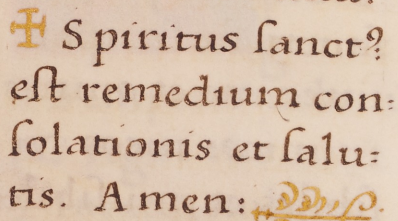 ✠ Spiritus ſanctꝰ
eſt remedium con⸗
ſolationis et ſalu⸗
tis. Amen: